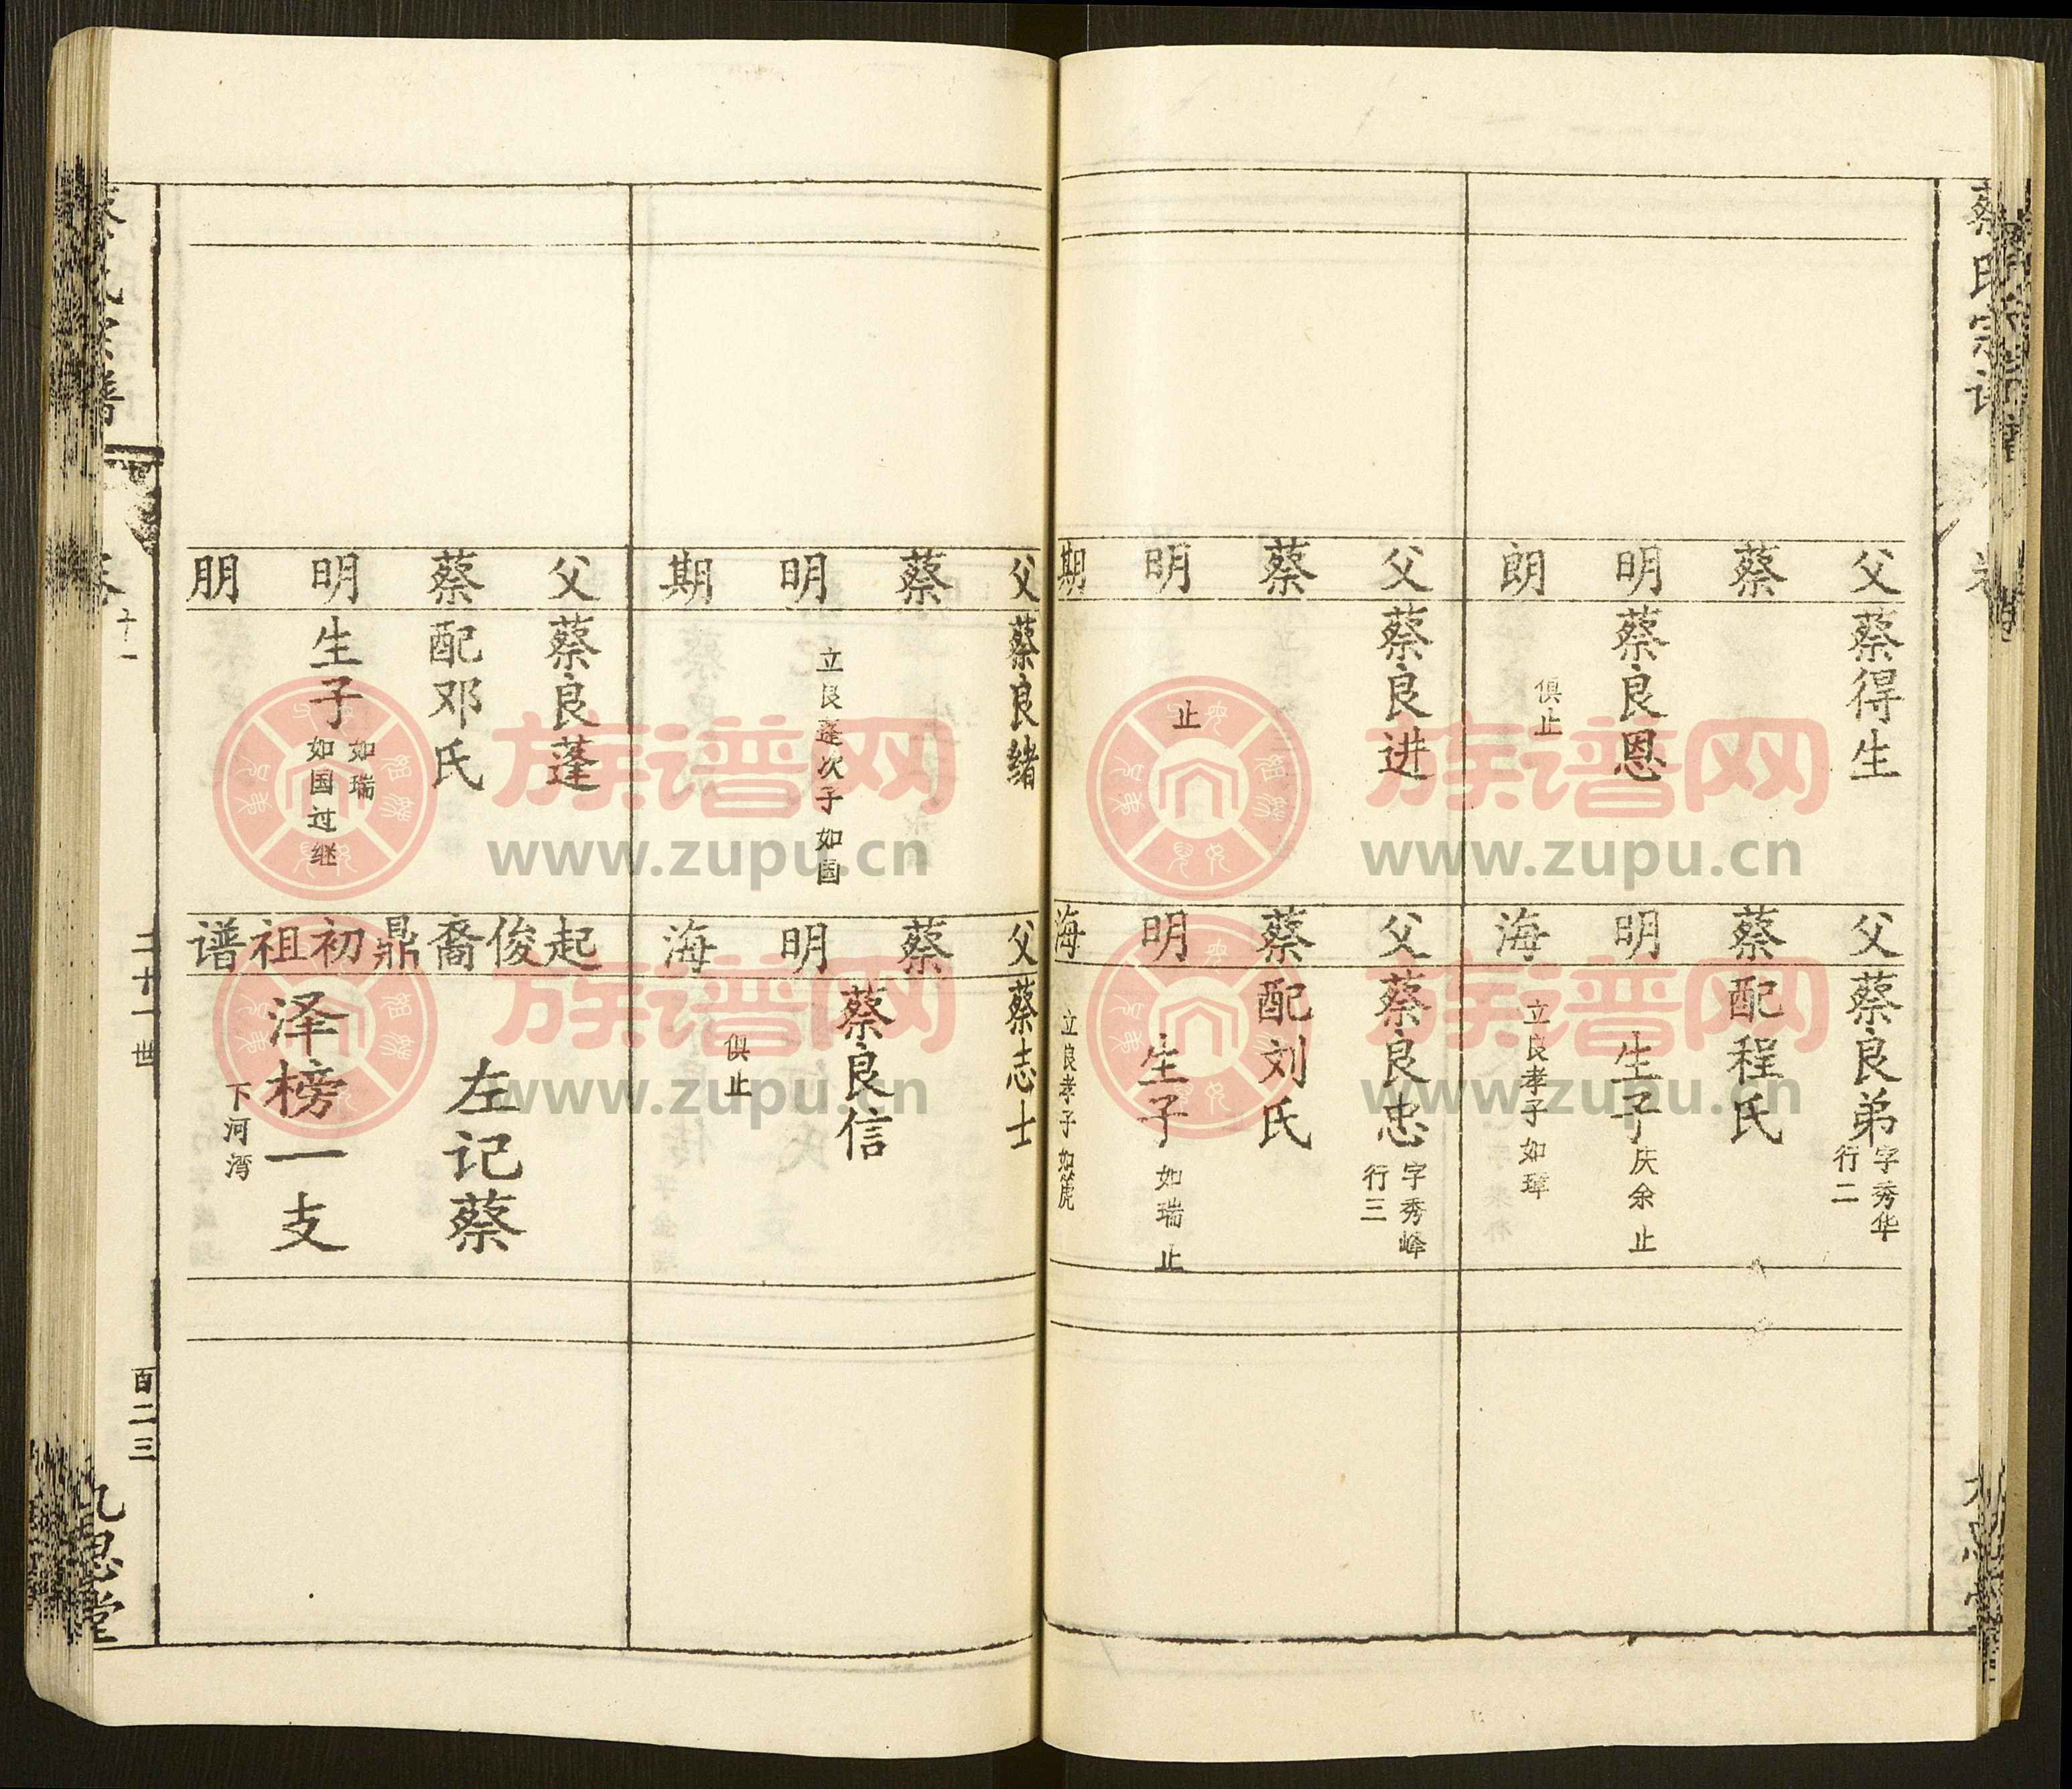 蔡氏宗谱
父蔡明朗
蔡得生
蔡良恩
俱止
父蔡明期
蔡良进
止
父蔡明海
蔡良弟
字秀华
行二
配程氏
生子
庆余 止
立良孝子如璋
父蔡明海
蔡良忠
字秀峰
行三
配刘氏
生子
如瑞 止
立良孝子如箎
父蔡明期
蔡良绪
立良蓬次子如国
父蔡明朋
蔡良蓬
配邓氏
生子
如瑞
如国过继
父蔡明海
蔡志士
蔡良信
俱止
起俊裔鼎初祖谱
左记蔡
泽榜一支
下河湾
十一
二十一世
百二三
九思堂
族谱网
www.zupu.cn
族谱网
www.zupu.cn
族谱网
www.zupu.cn
族谱网
www.zupu.cn